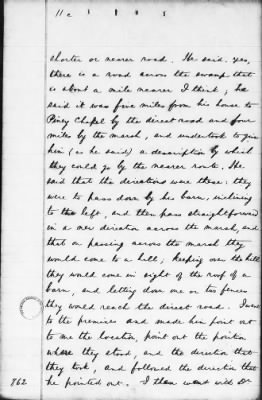 11 c
shorter or nearer road. He said, yes,
there is a road across the swamp that
is about a mile nearer I think; he
said it was five miles from his house to
Piney Chapel by the direct road and four
miles by the marsh, and undertook to give
him (as he said) a description by which
they could go by the nearer route. He
said that the directions were these: they
were to pass down by his barn, inclining
to the left, and then pass straightforward
in a new direction across the marsh, and
that on passing across the marsh they
would come to a hill; keeping over the hill
they would come in sight of the roof of a
barn, and letting down one or two fences
they would reach the direct road. I went
to the premises and made him point out
to me the location, point out the position
where they stood, and the direction that
they took, and followed the direction that
he pointed out. I then went with Dr
762